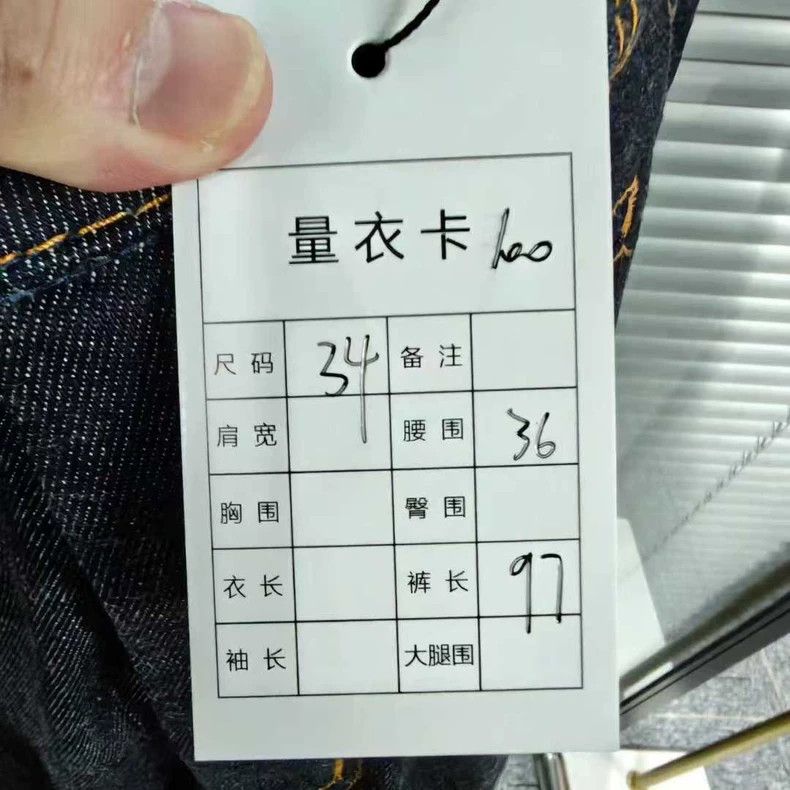 量衣卡 100
尺码 34 备注
肩宽 腰围 36
胸围 臀围
衣长 裤长 97
袖长 大腿围